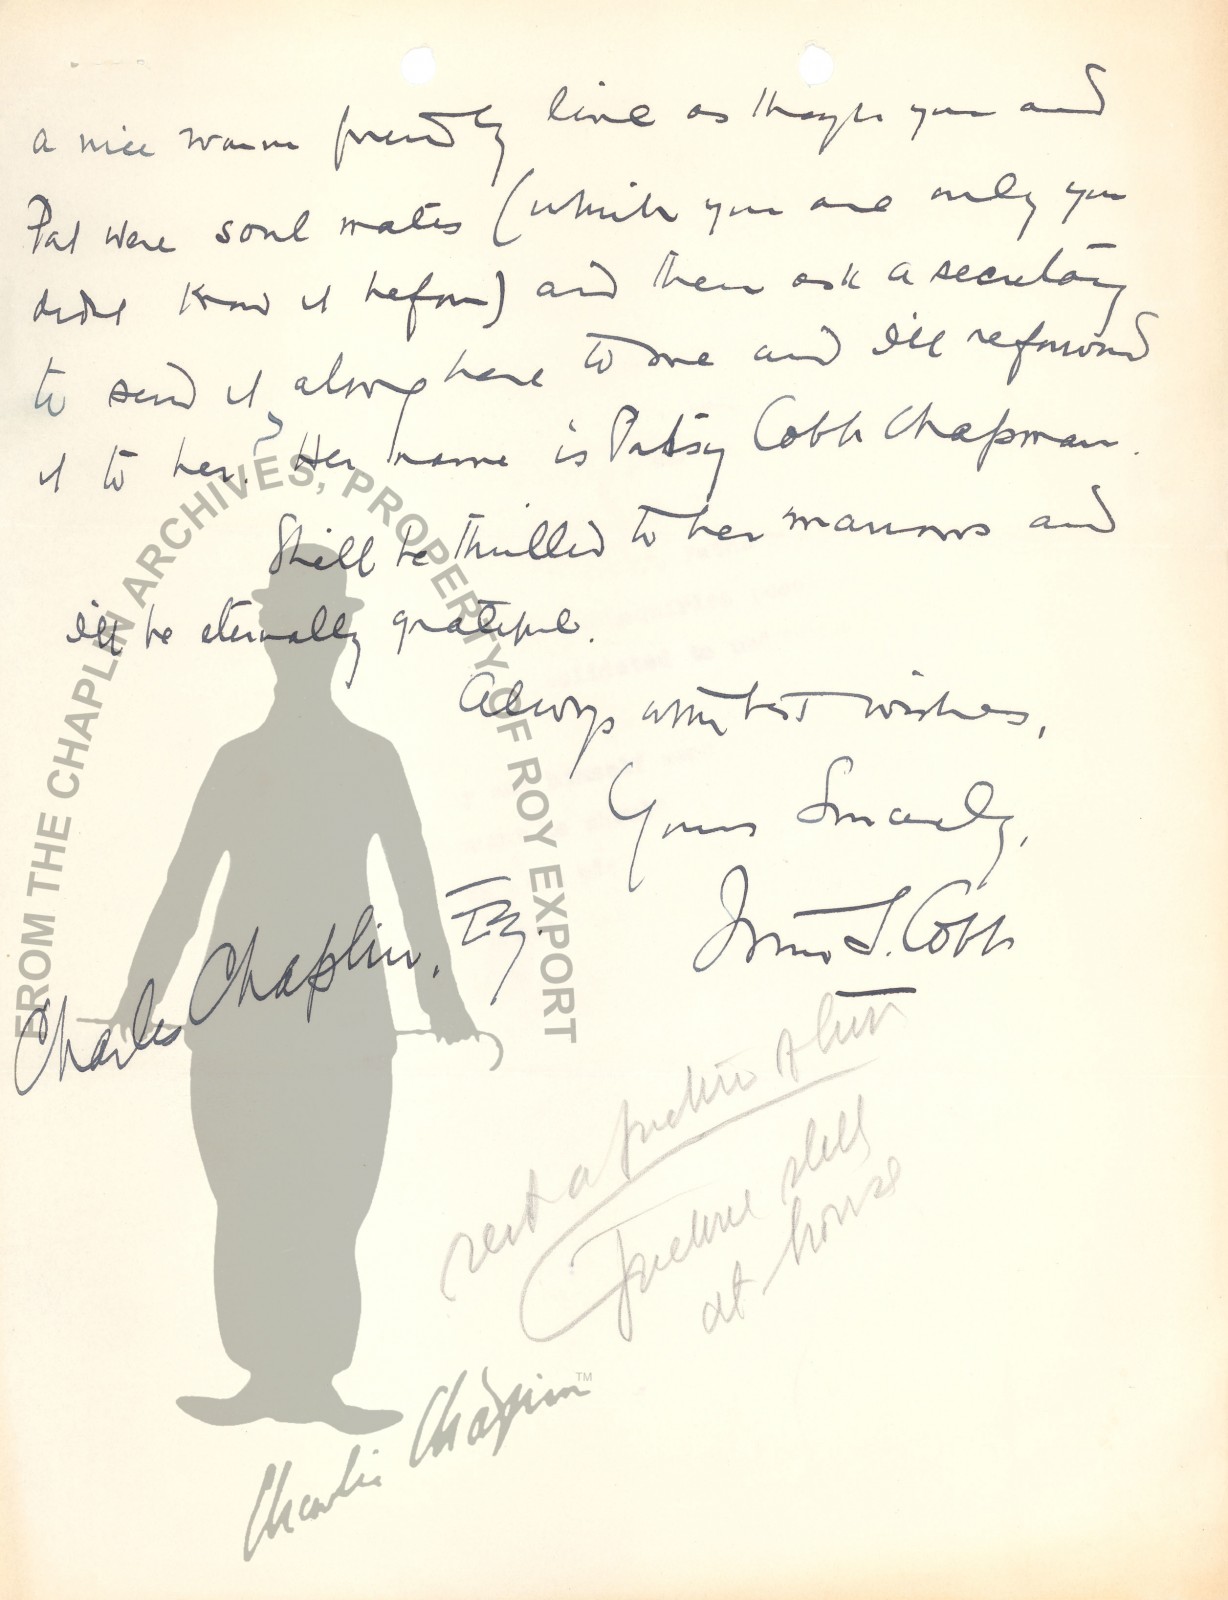 a nice warm friendly line as though you and
Pat were soul mates (which you are only you
didnt know it before) and then ask a secretary
to send it along here to me and I'll reforward
it to her. Her name is Patsy Cobb Chapman.
She'll be thrilled to her marrows and
I'll be eternally grateful.
Always with best wishes,
Yours Sincerely,
Irvin S. Cobb
Charles Chaplin, Esq.
sent a
at house
FROM THE CHAPLIN ARCHIVES, PROPERTY OF ROY EXPORT
Charlie Chaplin ™